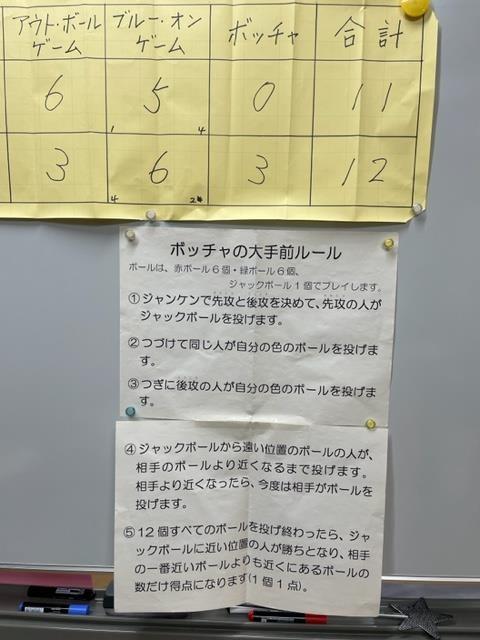 アウト・ボール ブルー・オン ボッチャ 合計
ゲーム ゲーム
6 5 0 11
1 4
3 6 3 12
4 2
ボッチャの大手前ルール
ボールは、赤ボール6個・緑ボール6個、
ジャックボール1個でプレイします。
①ジャンケンで先攻と後攻を決めて、先攻の人が
ジャックボールを投げます。
②つづけて同じ人が自分の色のボールを投げま
す。
③つぎに後攻の人が自分の色のボールを投げま
す。
④ジャックボールから遠い位置のボールの人が、
相手のボールより近くなるまで投げます。
相手より近くなったら、今度は相手がボールを
投げます。
⑤12個すべてのボールを投げ終わったら、ジャ
ックボールに近い位置の人が勝ちとなり、相手
の一番近いボールよりも近くにあるボールの
数だけ得点になります(1個1点)。